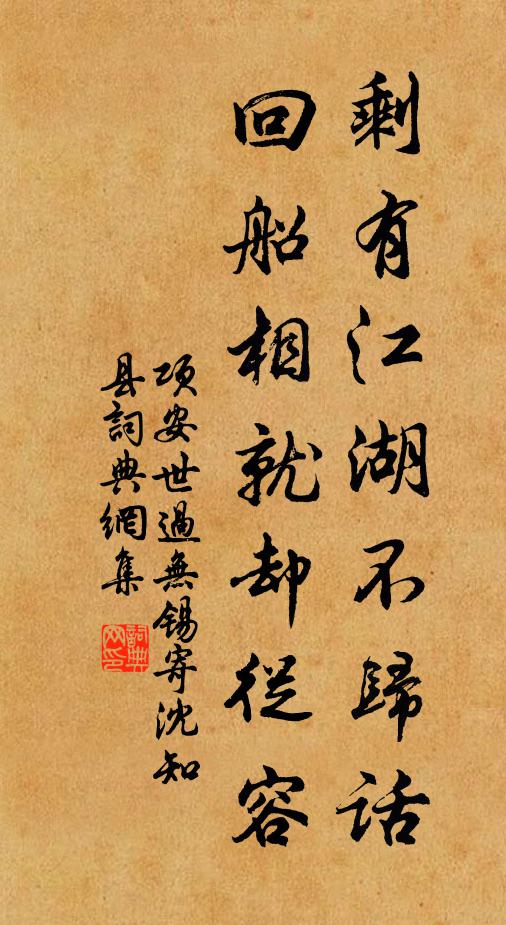 剩有江湖不歸話
回船相就却從容
項安世過無錫寄沈知
县詞典網集
詞典网印